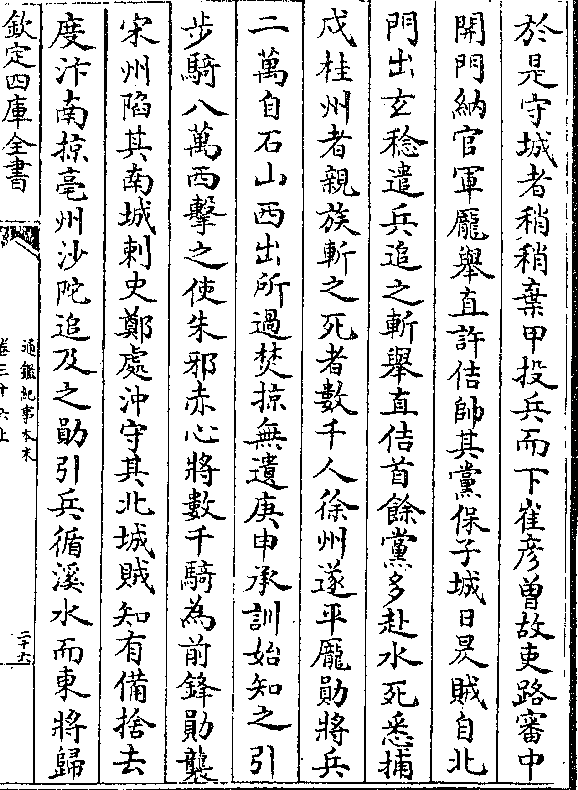 於是守城者稍稍棄甲投兵而下崔彦曽故吏路審中
開門納官軍龎舉直許佶帥其黨保子城日昃賊自北
門出玄稔遣兵追之斬舉直佶首餘黨多赴水死悉捕
戍桂州者親族斬之死者數千人徐州遂平龎勛將兵
二萬自石山西出所過焚掠無遺庚申承訓始知之引
步騎八萬西擊之使朱邪赤心將數千騎為前鋒勛襲
宋州陷其南城刺史鄭處沖守其北城賊知有備捨去
度汴南掠亳州沙陀追及之勛引兵循溪水而東將歸
欽定四庫全書
通鑑紀事本末
卷三十六上
二十六